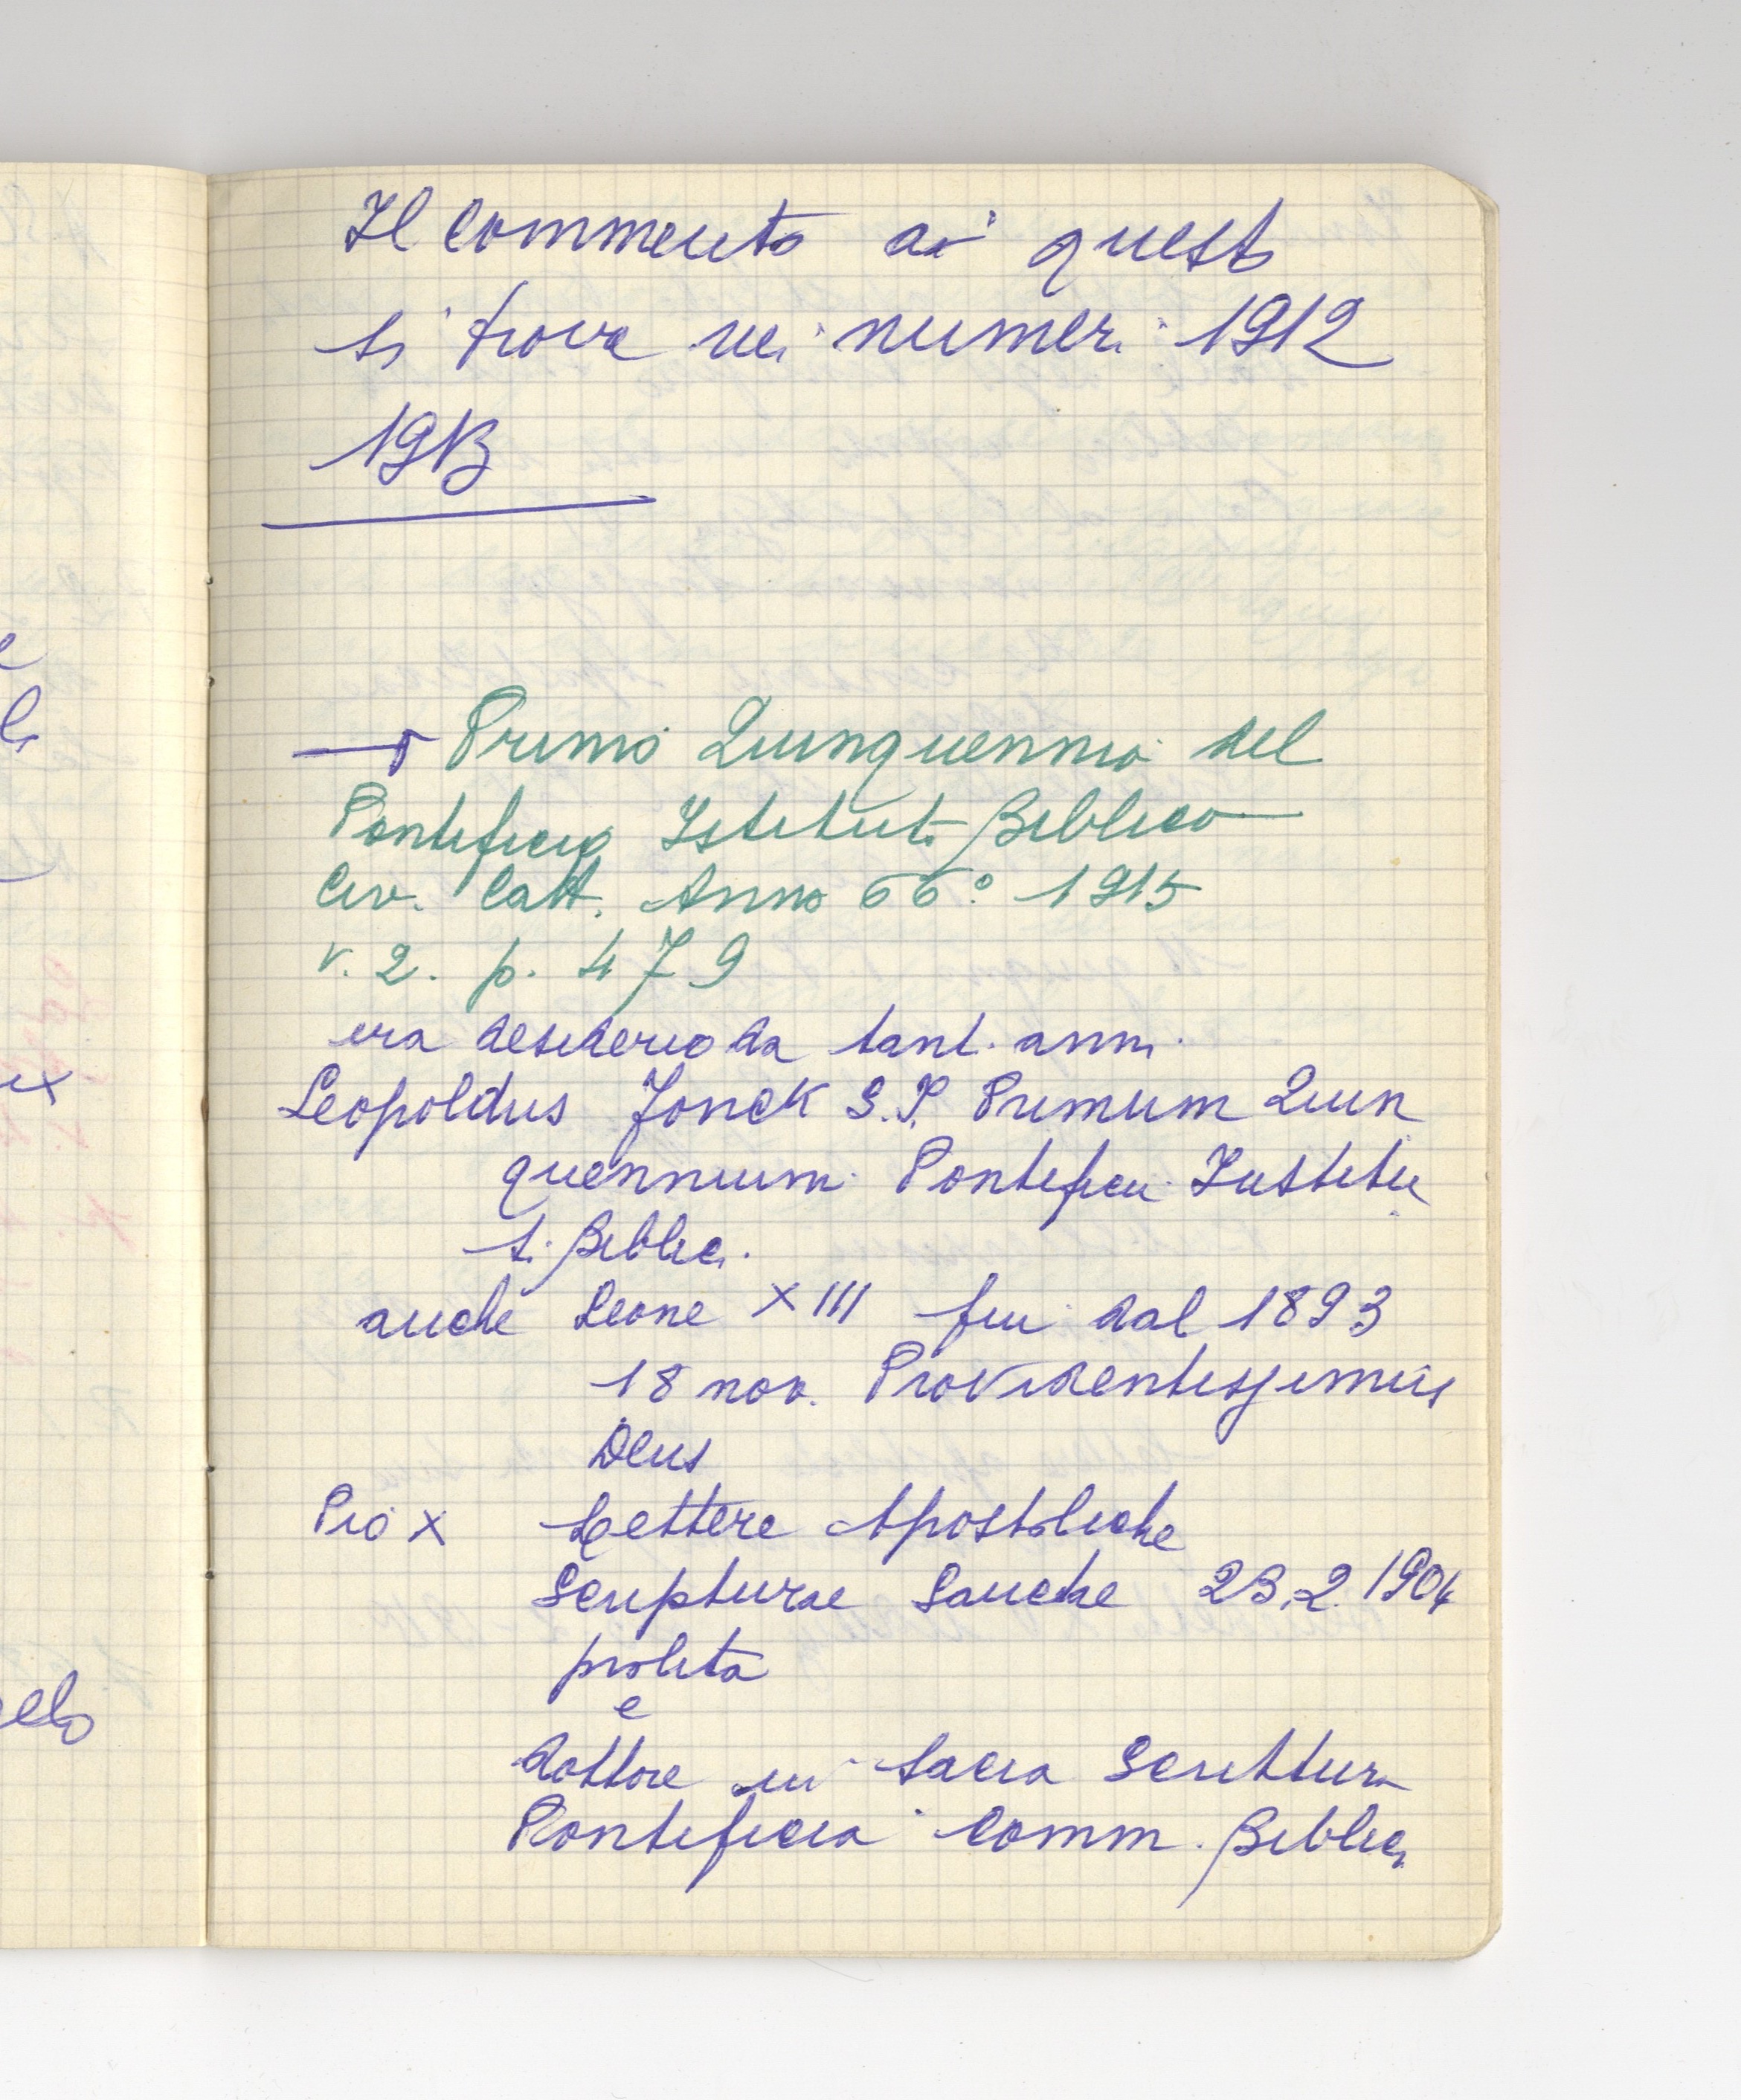 Il commento a questo
si trova nei numeri 1912
1913
Primo Quinquennio del
Pontificio Istituto Biblico
Civ. Catt. Anno 66° 1915
v. 2. p. 479
era desiderio da tanti anni
Leopoldus Fonck S.J. Primum Quin
quennium Pontificii Institu
ti Biblici.
anche Leone XIII fin dal 1893
18 nov. Providentissimus
Deus
Pio X Lettere Apostoliche
Scripturae Sanctae 23.2.1904
prolita
e
dottore in Sacra Scrittura
Pontificia Comm. Biblica